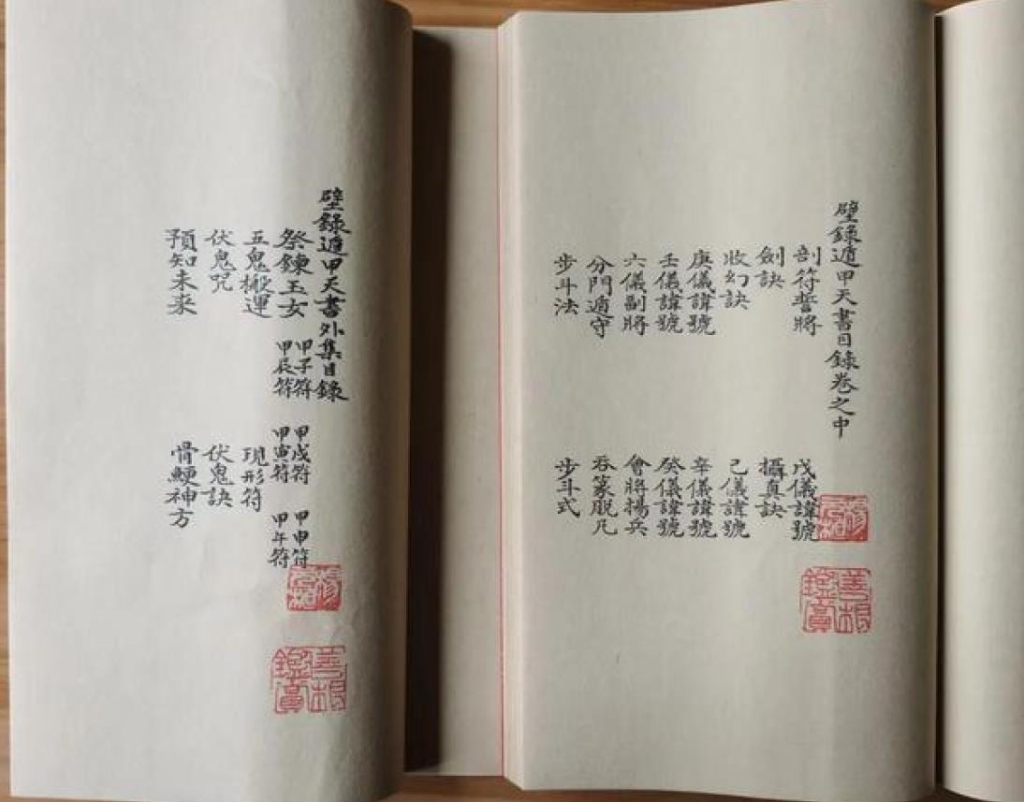 壁錄遁甲天書目錄卷之中
剖符誓將 戊儀諱號
劍訣 攝真訣
收幻訣 己儀諱號
庚儀諱號 辛儀諱號
壬儀諱號 癸儀諱號
六儀副將 會將揚兵
分門遁守 吞篆脫凡
步斗法 步斗式
善根
鑑賞
壁錄遁甲天書外集目錄
祭鍊玉女 甲子符 甲戌符 甲申符
甲辰符 甲寅符 甲午符
五鬼搬運 現形符
伏鬼咒 伏鬼訣
預知未來 骨鯁神方
善根
鑑賞